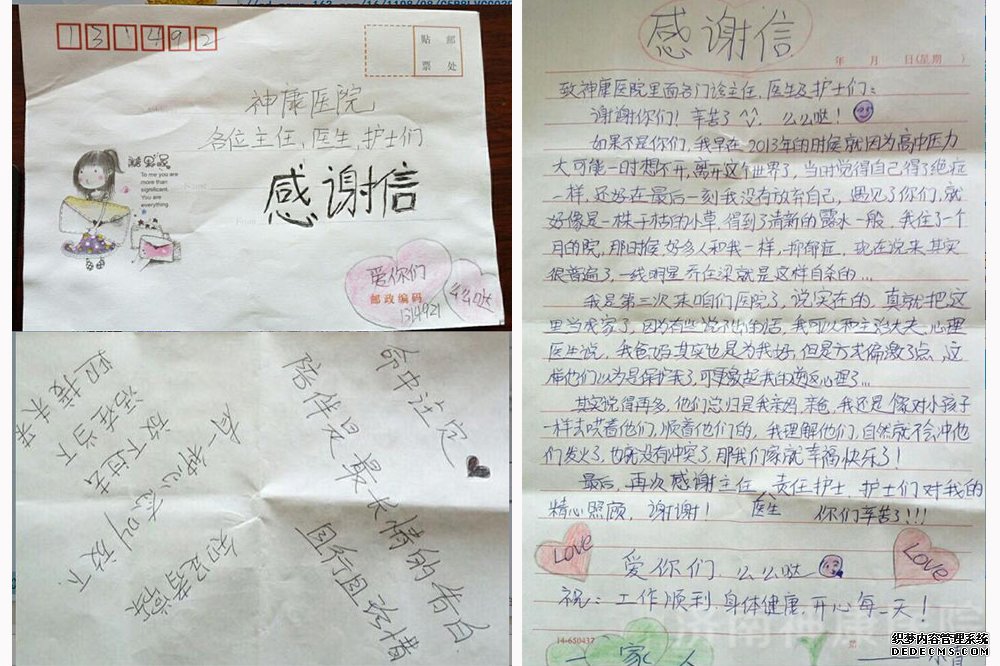 131492
贴 邮
票 处
神康医院
各位主任、医生、护士们
感谢信
To me you are
more than
significant.
You are
everything.
Name
From
爱你们
邮政编码
1314921
么么哒
命中注定
陪伴是最长情的告白
且行且珍惜
有一种心态叫放下
放不过去
活在当下
迎接未来
感谢信
年 月 日(星期 )
致神康医院里面各门诊主任、医生及护士们:
谢谢你们!辛苦了 么么哒!
如果不是你们,我早在2013年的时候就因为高中压力
大可能一时想不开,离开这个世界了,当时觉得自己得了绝症
一样,还好在最后一刻我没有放弃自己,遇见了你们,就
好像是一株干枯的小草,得到了清新的露水一般,我住了一个
月的院,那时候好多人和我一样,抑郁症,现在说来其实
很普遍了,一线明星乔任梁就是这样自杀的...
我是第三次来咱们医院了,说实在的,真就把这
里当成家了,因为有些说不出的话,我可以和主治大夫、心理
医生说,我爸妈其实也是为我好,但是方式偏激了点,这
样他们以为是保护我了,可更激起我的逆反心理了...
其实说得再多,他们总归是我亲妈、亲爸,我还是像对小孩子
一样去哄着他们,顺着他们的,我理解他们,自然就不会冲他
们发火了,也就没有冲突了,那我们家就幸福快乐了!
最后,再次感谢主任、责任护士、护士们对我的
精心照顾,谢谢! 医生 你们辛苦了!!!
Love
Love
爱你们,么么哒
祝:工作顺利,身体健康,开心每一天!
14-650437
一家人
济南神康医院
织梦内容管理系统
DEDECMS.COM